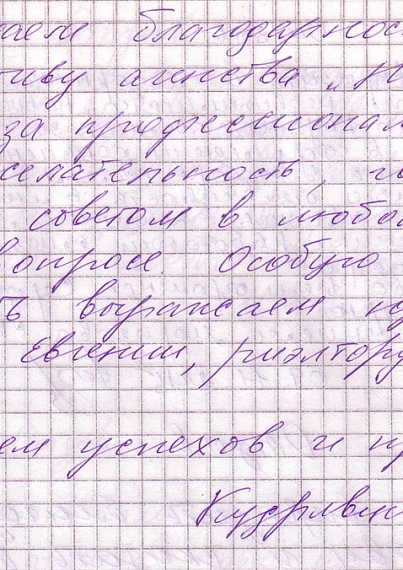 аем благодарнос
тиву агнства „Н
за професcионал
желательность, п
советом в любо
вопросе. Особую
ть выражаем н
Евгении, риэлтору
ем успехов и п
Кудрявц